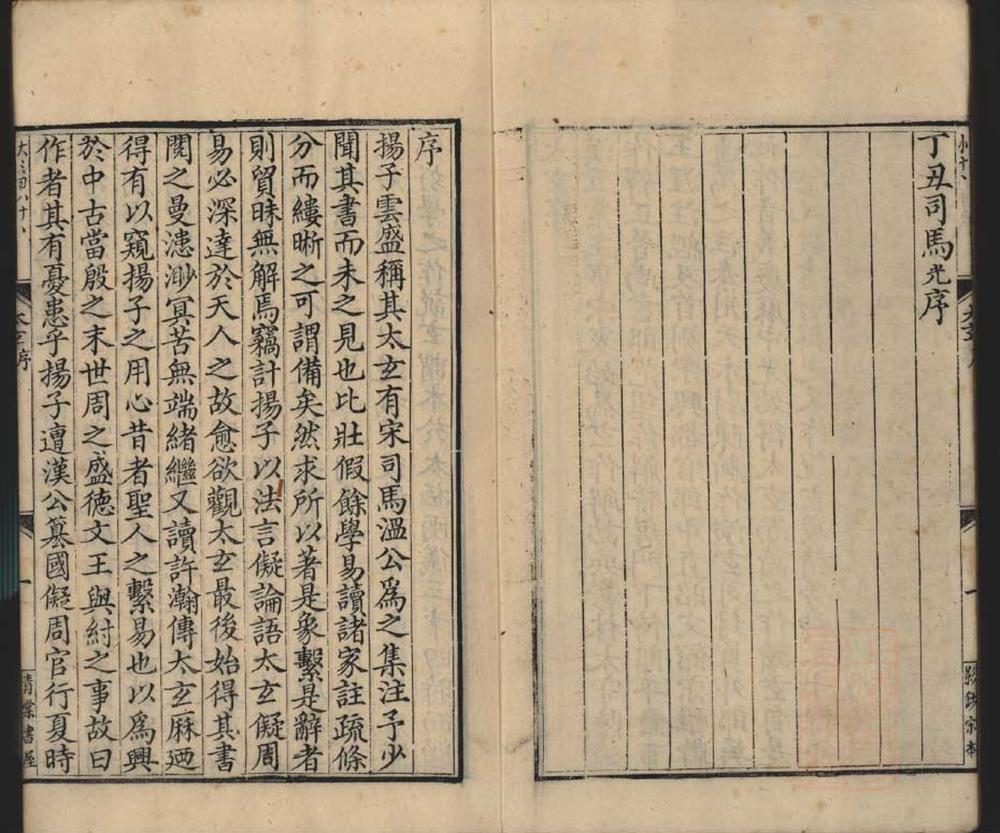 丁丑司馬光序
影欽宗本
序
揚子雲盛稱其太玄有宋司馬溫公爲之集注予少
聞其書而未之見也比壯假餘學易讀諸家註疏條
分而縷晰之可謂備矣然求所以著是象繫是辭者
則貿昧無解焉竊計揚子以法言儗論語太玄儗周
易必深達於天人之故愈欲觀太玄最後始得其書
閱之曼漶渺冥苦無端緒繼又讀許瀚傳太玄麻迺
得有以窺揚子之用心昔者聖人之繫易也以爲興
於中古當殷之末世周之盛德文王與紂之事故曰
作者其有憂患乎揚子遭漢公簒國儗周官行夏時
太玄序
一
書屋